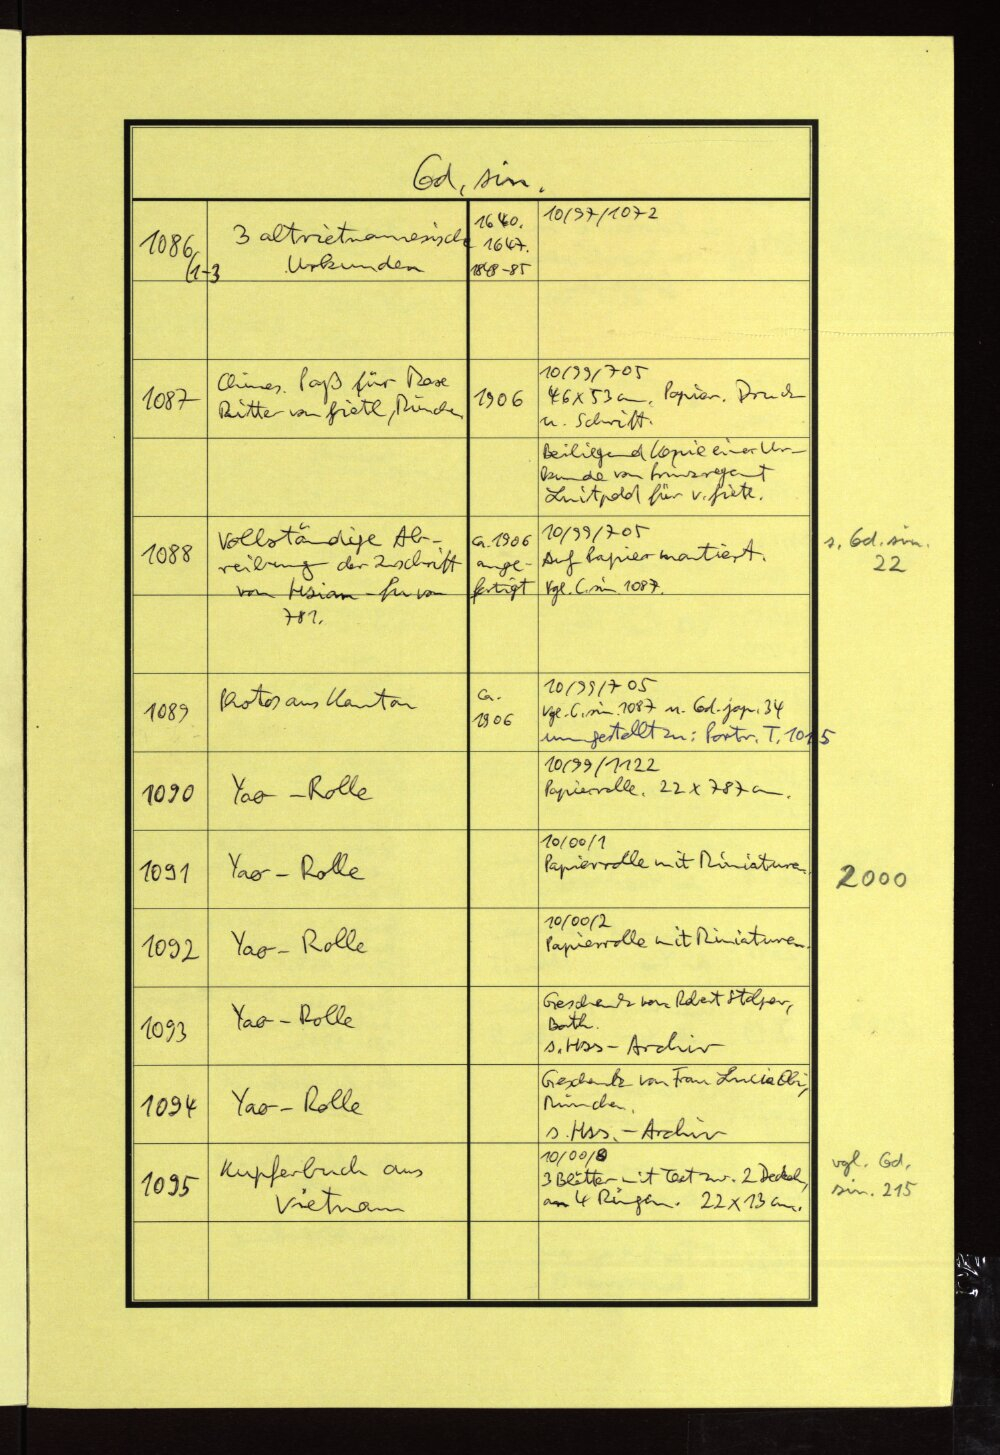 Cod. sin.
1086/1-3
3 altvietnamesische
Urkunden
1640.
1647.
1848-85
10/97/1072
1087
Chines. Paß für
Ritter von, München
1906
10/99/705
46 x 53 cm. Papier. Druck
u. Schrift.
Beiliegend Kopie einer Ur-
kunde von Prinzregent
Luitpold für v.
1088
Vollständige Ab-
reibung der Inschrift
von Hsian-fu von
781.
ca. 1906
ange-
fertigt
10/99/705
Auf Papier montiert.
Vgl. C. sin. 1087.
s. Cod. sin.
22
1089
Photos aus Kanton
ca.
1906
10/99/705
Vgl. C. sin. 1087 u. Cod. jap. 34
umgestellt zu: Portr. T. 1015
1090
Yao-Rolle
10/99/1122
Papierrolle. 22 x 787 cm.
1091
Yao-Rolle
10/00/1
Papierrolle mit Miniaturen.
2000
1092
Yao-Rolle
10/00/2
Papierrolle mit Miniaturen.
1093
Yao-Rolle
Geschenk von Robert Stolper,
Bath.
s. Hss-Archiv
1094
Yao-Rolle
Geschenk von Frau Lucia Obi,
München.
s. Hss.-Archiv
1095
Kupferbuch aus
Vietnam
10/00/8
3 Blätter mit Text zw. 2 Deckeln,
an 4 Ringen. 22 x 13 cm.
vgl. Cod.
sin. 215